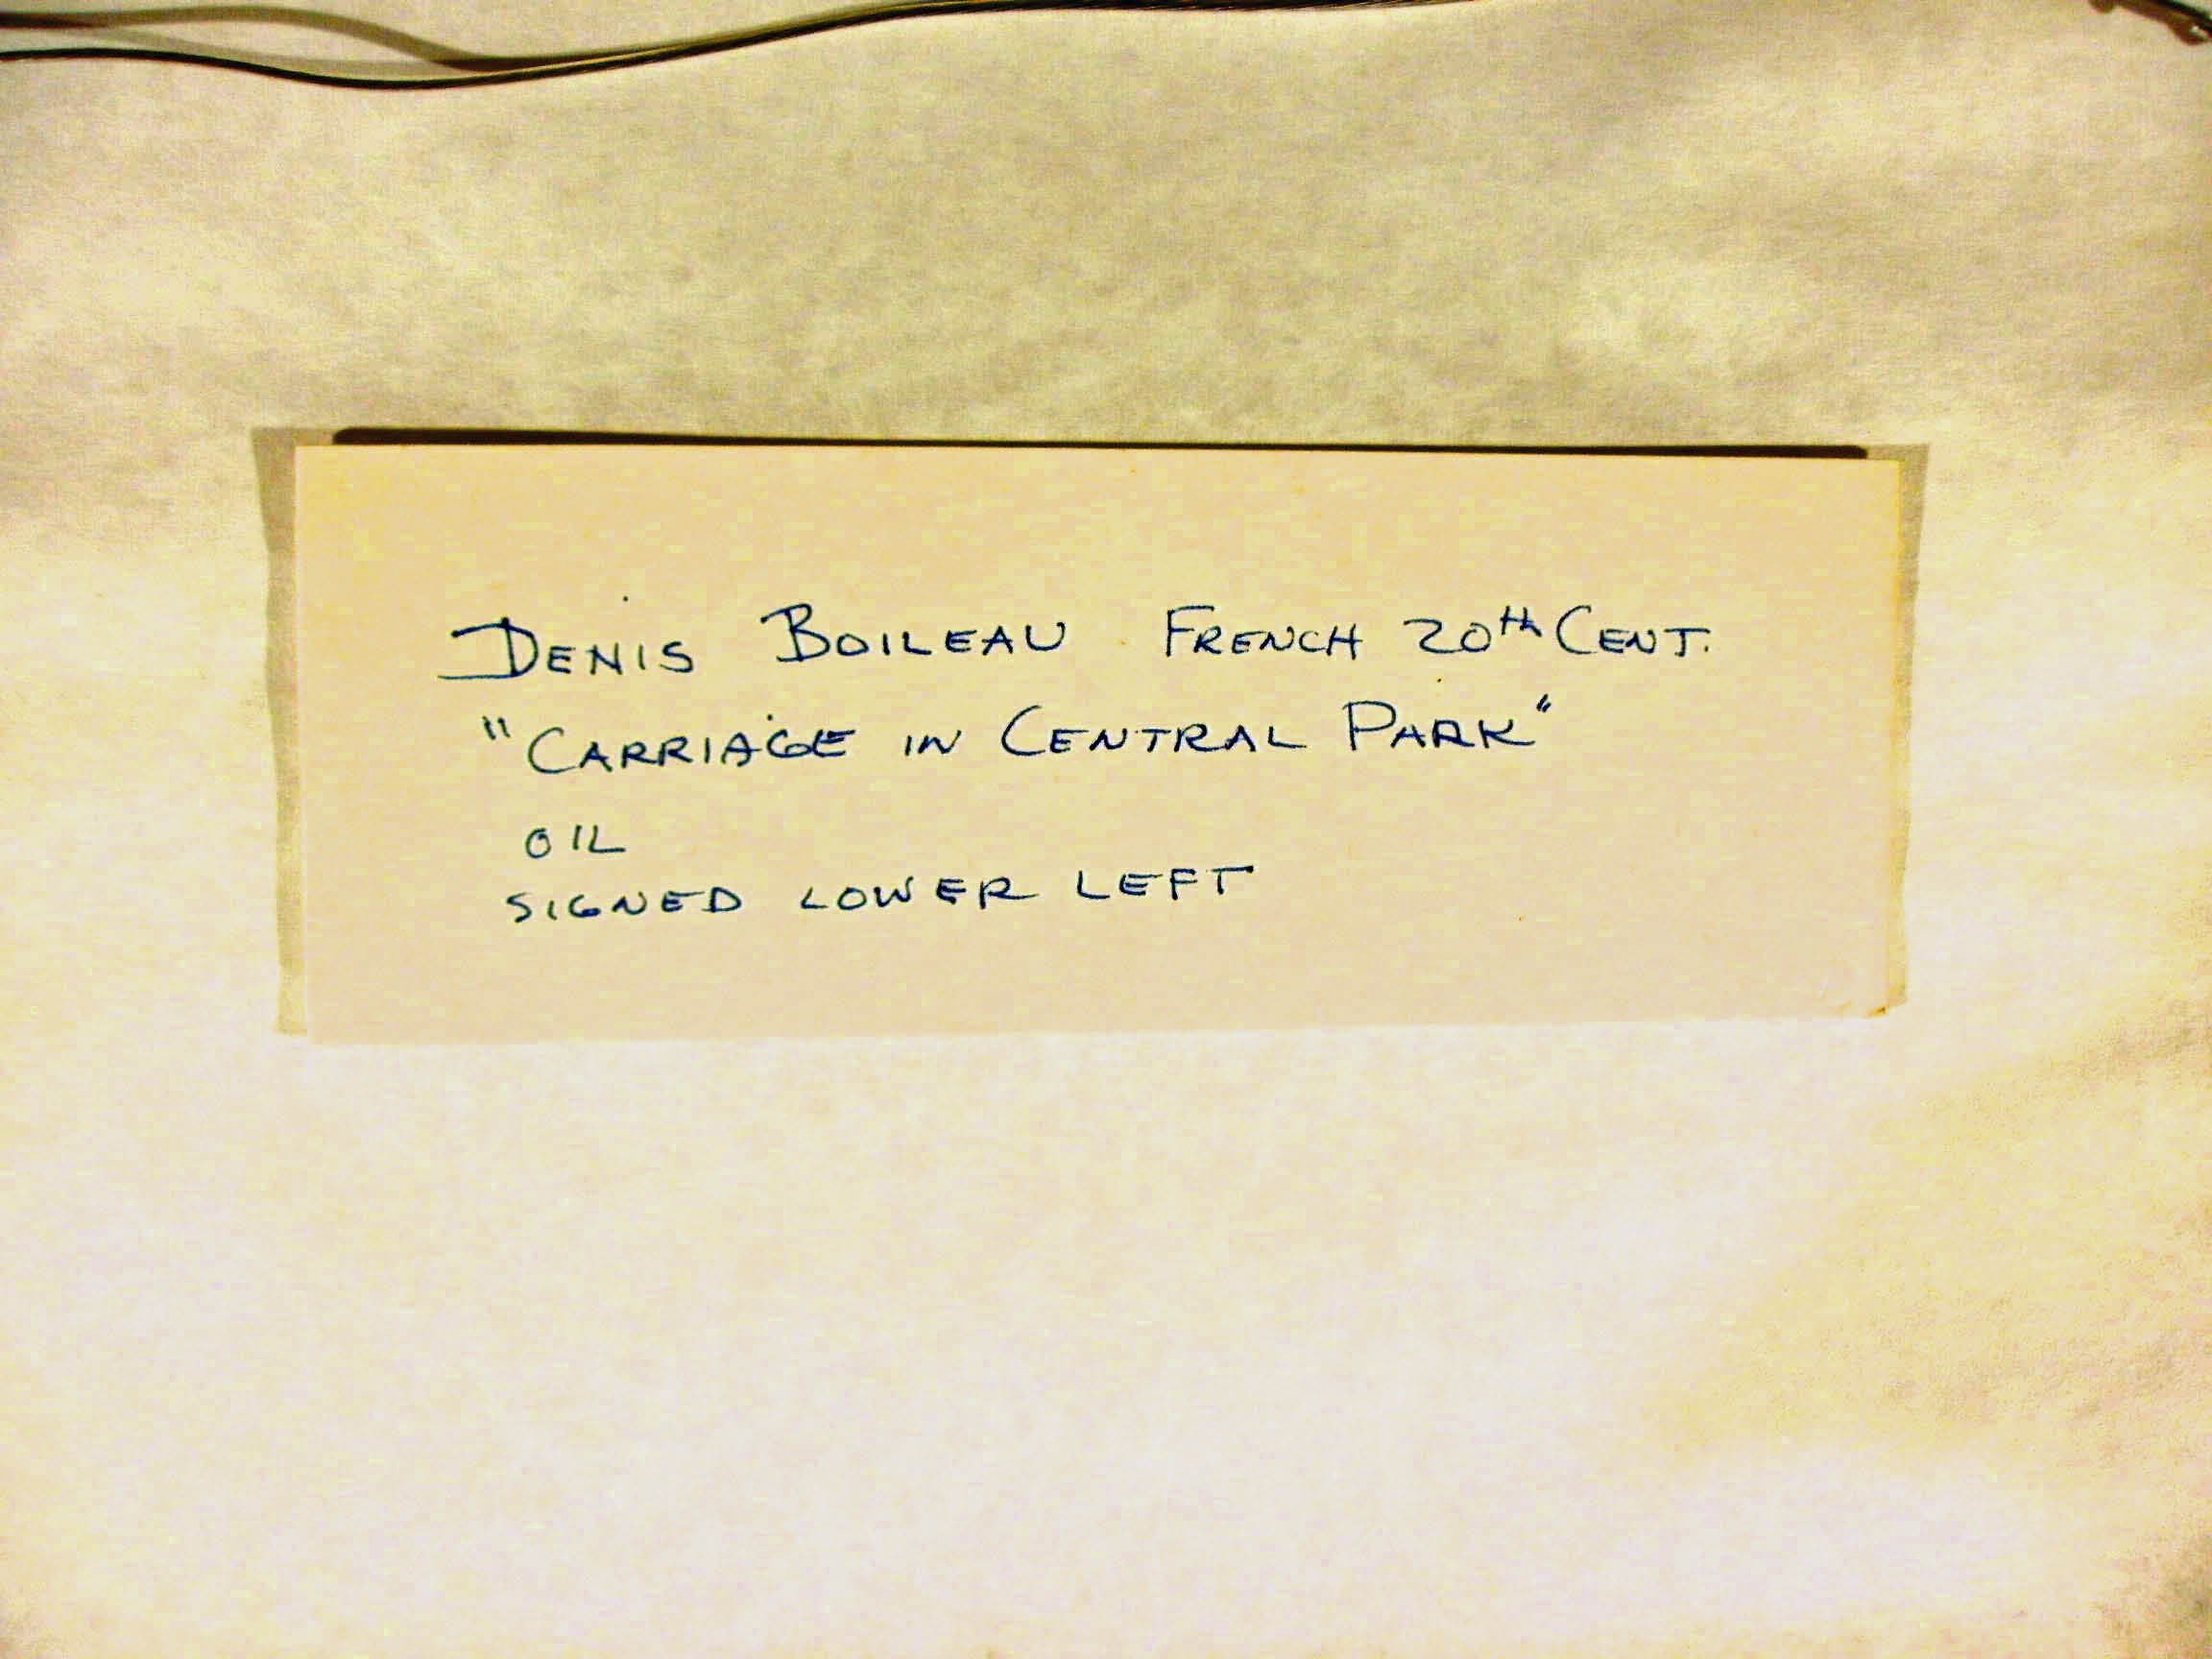 DENIS BOILEAU FRENCH 20th CENT.
"CARRIAGE IN CENTRAL PARK"
OIL
SIGNED LOWER LEFT